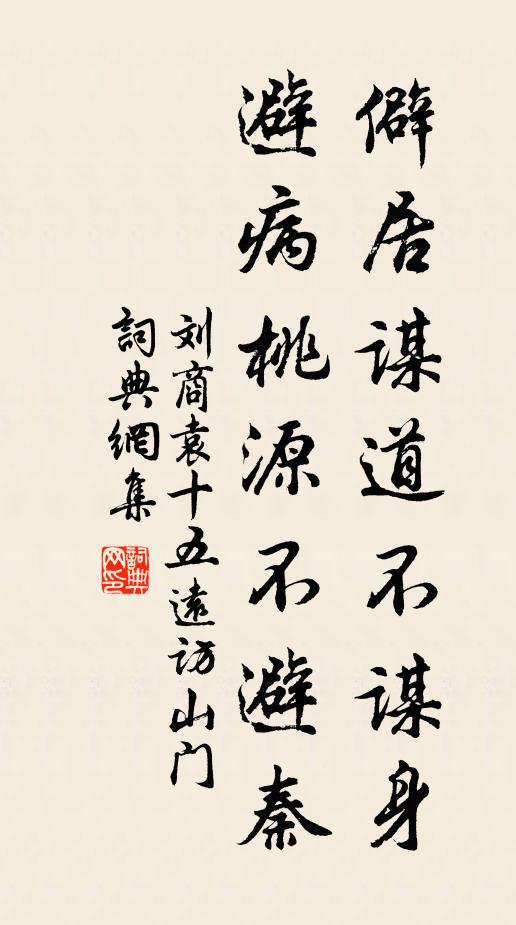 僻居謀道不謀身
避病桃源不避秦
刘商袁十五遠访山门
詞典網集
詞典网印